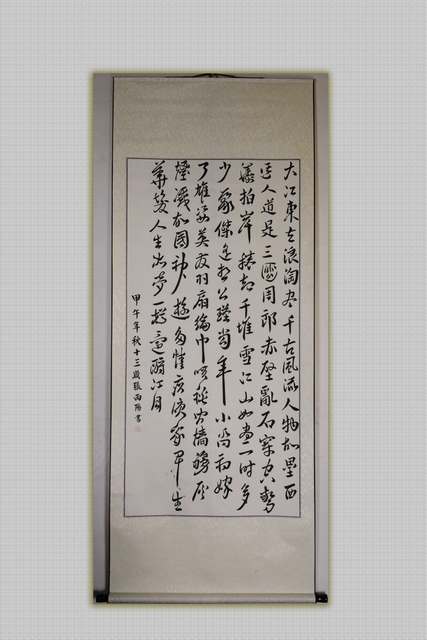 大江東去浪淘盡千古風流人物故壘西
邊人道是三國周郎赤壁亂石穿空驚
濤拍岸捲起千堆雪江山如畫一時多
少豪傑遙想公瑾當年小喬初嫁
了雄姿英發羽扇綸巾談笑間檣櫓灰
煙滅故國神遊多情應笑我早生
華髮人生如夢一樽還酹江月
甲午年秋十三歲張雨陽書